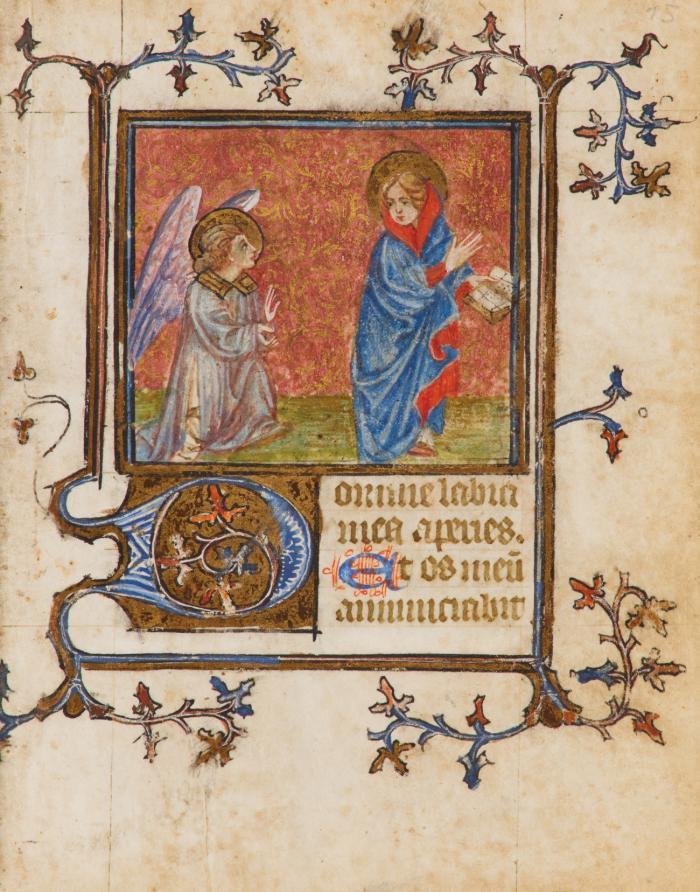 15
Domine labia
mea aperies.
Et os meū
annunciabit